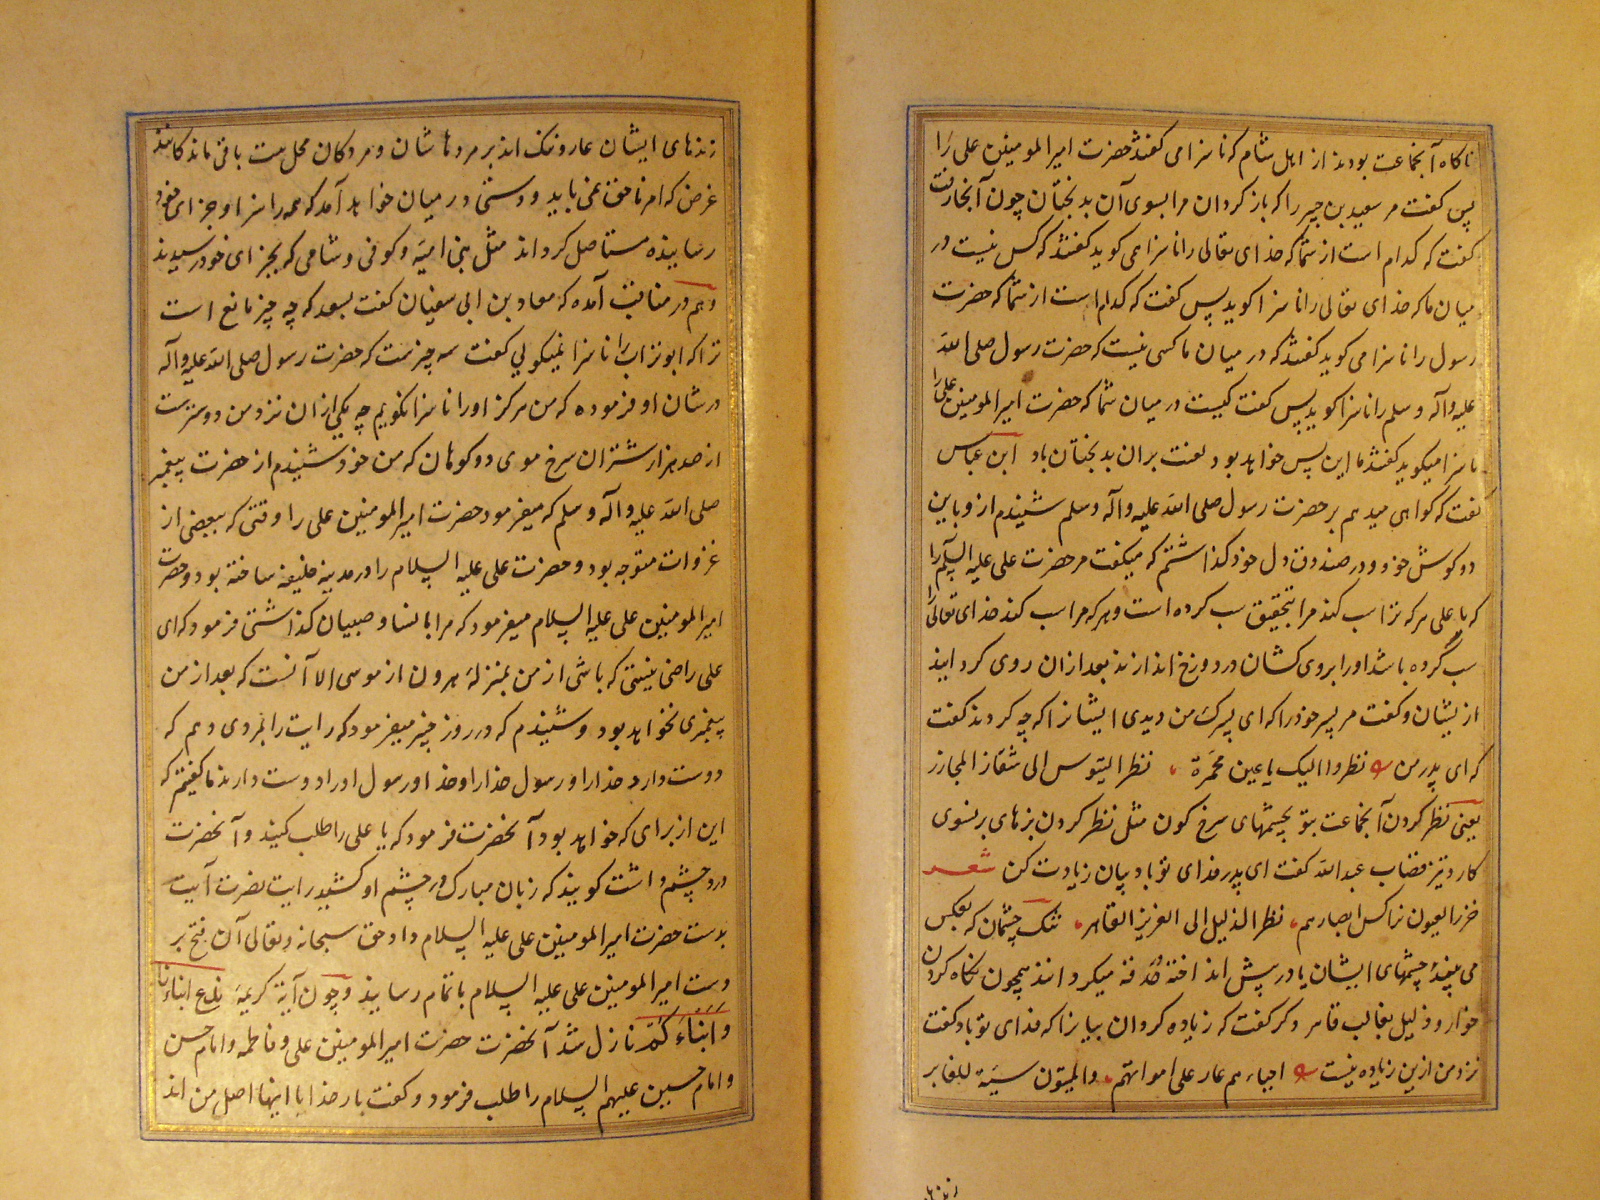 ناکاه آنجماعت بودند از اهل شام که ناسزا می کفتند حضرت امیر المومنین علی را
پس کفت مر سعید بن جبیر را که باز کردان مرا بسوی آن بدبختان چون آنجا رفت
کفت که کدام است از شما که خدای تعالی را ناسزا می کوید کفتند که کس نیست در
میان ما که خدای تعالی را ناسزا کوید پس کفت که کدام است از شما که حضرت
رسول را ناسزا می کوید کفتند که در میان ما کسی نیست که حضرت رسول صلی الله
علیه و آله و سلم را ناسزا کوید پس کفت کیست در میان شما که حضرت امیر المومنین علی را
ناسزا میکوید کفتند ما این پس خواهد بود لعنت بران بدبختان باد ابن عباس
کفت که کواهی میدهم بر حضرت رسول صلی الله علیه و آله و سلم شنیدم ازو باین
دو کوش خود و در صندوق دل خود کذاشتم که میکفت مر حضرت علی علیه السلام را
که یا علی هر که ترا سب کند مرا بتحقیق سب کرده است و هر که مرا سب کند خدای تعالی را
سب کرده باشد او را بروی کشان در دوزخ اندازند بعد ازان روی کردانید
ازیشان و کفت مر پسر خود را که ای پسرک من دیدی ایشانرا که چه کردند کفت
که ای پدر من نظروا الیک یا عین محمرة نظر التیوس الی شفار الجازر
یعنی نظر کردن آنجماعت بتو بچشمهای سرخ کون مثل نظر کردن بزهای بر نسوی
کارد تیز قصاب عبد الله کفت ای پدر فدای تو باد بیان زیادت کن شعر
خزر العیون نواکس ابصارهم نظر الذلیل الی العزیز القاهر تنک چشمان که بعکس
می بینند چشمهای ایشان یا در پیش انداخته میکردانند همچون نکاه کردن
خوار و ذلیل بغالب قاهر دکر کفت که زیاده کردان بیانرا که فدای تو باد کفت
نزد من ازین زیاده نیست احیاءهم عار علی امواتهم والمیتون سبة للغابر
زندهای ایشان عار و ننک اند بر مردهاشان و مردکان محل سب باقی ماندکانند
غرض که امر ناحق نمی باید و دستی در میان خواهد آمد که همه را سزا و جزای خود
رسانیده مستاصل کرداند مثل بنی امیه و کوفی و شامی که بجزای خود رسیدند
و هم در مناقب آمده که معاویه بن ابی سفیان کفت بسعد که چه چیز مانع است
ترا که ابو تراب را ناسزا نمیکویی کفت سه چیزست که حضرت رسول صلی الله علیه و آله
در شان او فرموده که من هرکز او را ناسزا نکویم چه یکی ازان نزد من دوسترست
از صد هزار شتران سرخ موی دو کوهان که من خود شنیدم از حضرت پیغمبر
صلی الله علیه و آله و سلم که میفرمود حضرت امیر المومنین علی را وقتی که ببعضی از
غزوات متوجه بود و حضرت علی علیه السلام را در مدینه خلیفه ساخته بود و حضرت
امیر المومنین علی علیه السلام میفرمود که مرا بالنسا و صبیان کذاشتی فرمود که ای
علی راضی نیستی که باشی از من بمنزلهٔ هرون از موسی الا آنست که بعد از من
پیغمبری نخواهد بود و شنیدم که در روز خیبر میفرمود که رایت را بمردی دهم که
دوست دارد خدا را و رسول خدا را و خدا و رسول او را دوست دارند ما کفتیم که
این از برای که خواهد بود آنحضرت فرمود که یا علی را طلب کنید و آنحضرت
درد چشم داشت کویند که زبان مبارک در چشم او کشید رایت نصرت آیت
بدست حضرت امیر المومنین علی علیه السلام داد و حق سبحانه و تعالی آن فتح بر
دست امیر المومنین علی علیه السلام باتمام رسانید و چون آیهٔ کریمهٔ ندع ابناءنا
وابناءکم نازل شد آنحضرت حضرت امیر المومنین علی و فاطمه و امام حسن
و امام حسین علیهم السلام را طلب فرمود و کفت بار خدایا اینها اصل من اند